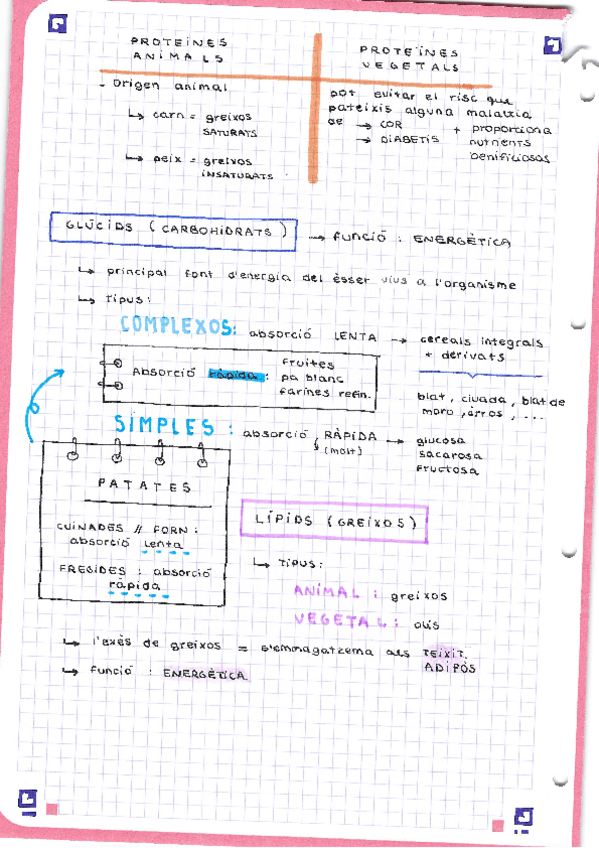 PROTEÏNES
ANIMALS
- Origen animal
↳ carn = greixos
SATURATS
↳ peix = greixos
INSATURATS
PROTEÏNES
VEGETALS
pot evitar el risc que
pateixis alguna malaltia
de → COR
→ DIABETIS
+ proporciona
nutrients
benificiosos
GLÚCIDS (CARBOHIDRATS) → FUNCIÓ : ENERGÈTICA
↳ principal font d'energia del ésser vius a l'organisme
↳ Tipus:
COMPLEXOS: absorció LENTA → cereals integrals
+ derivats
blat, civada, blat de
moro, arròs, ...
Absorció ràpida :
fruites
pa blanc
farines refin.
SIMPLES : absorció RÀPIDA →
↳ (molt)
glucosa
sacarosa
fructosa
PATATES
CUINADES // FORN :
absorció lenta
FREGIDES : absorció
ràpida
LÍPIDS (GREIXOS)
↳ Tipus:
ANIMAL : greixos
VEGETAL : olis
↳ l'exès de greixos = s'emmagatzema als TEIXIT.
ADIPÓS
↳ Funció : ENERGÈTICA